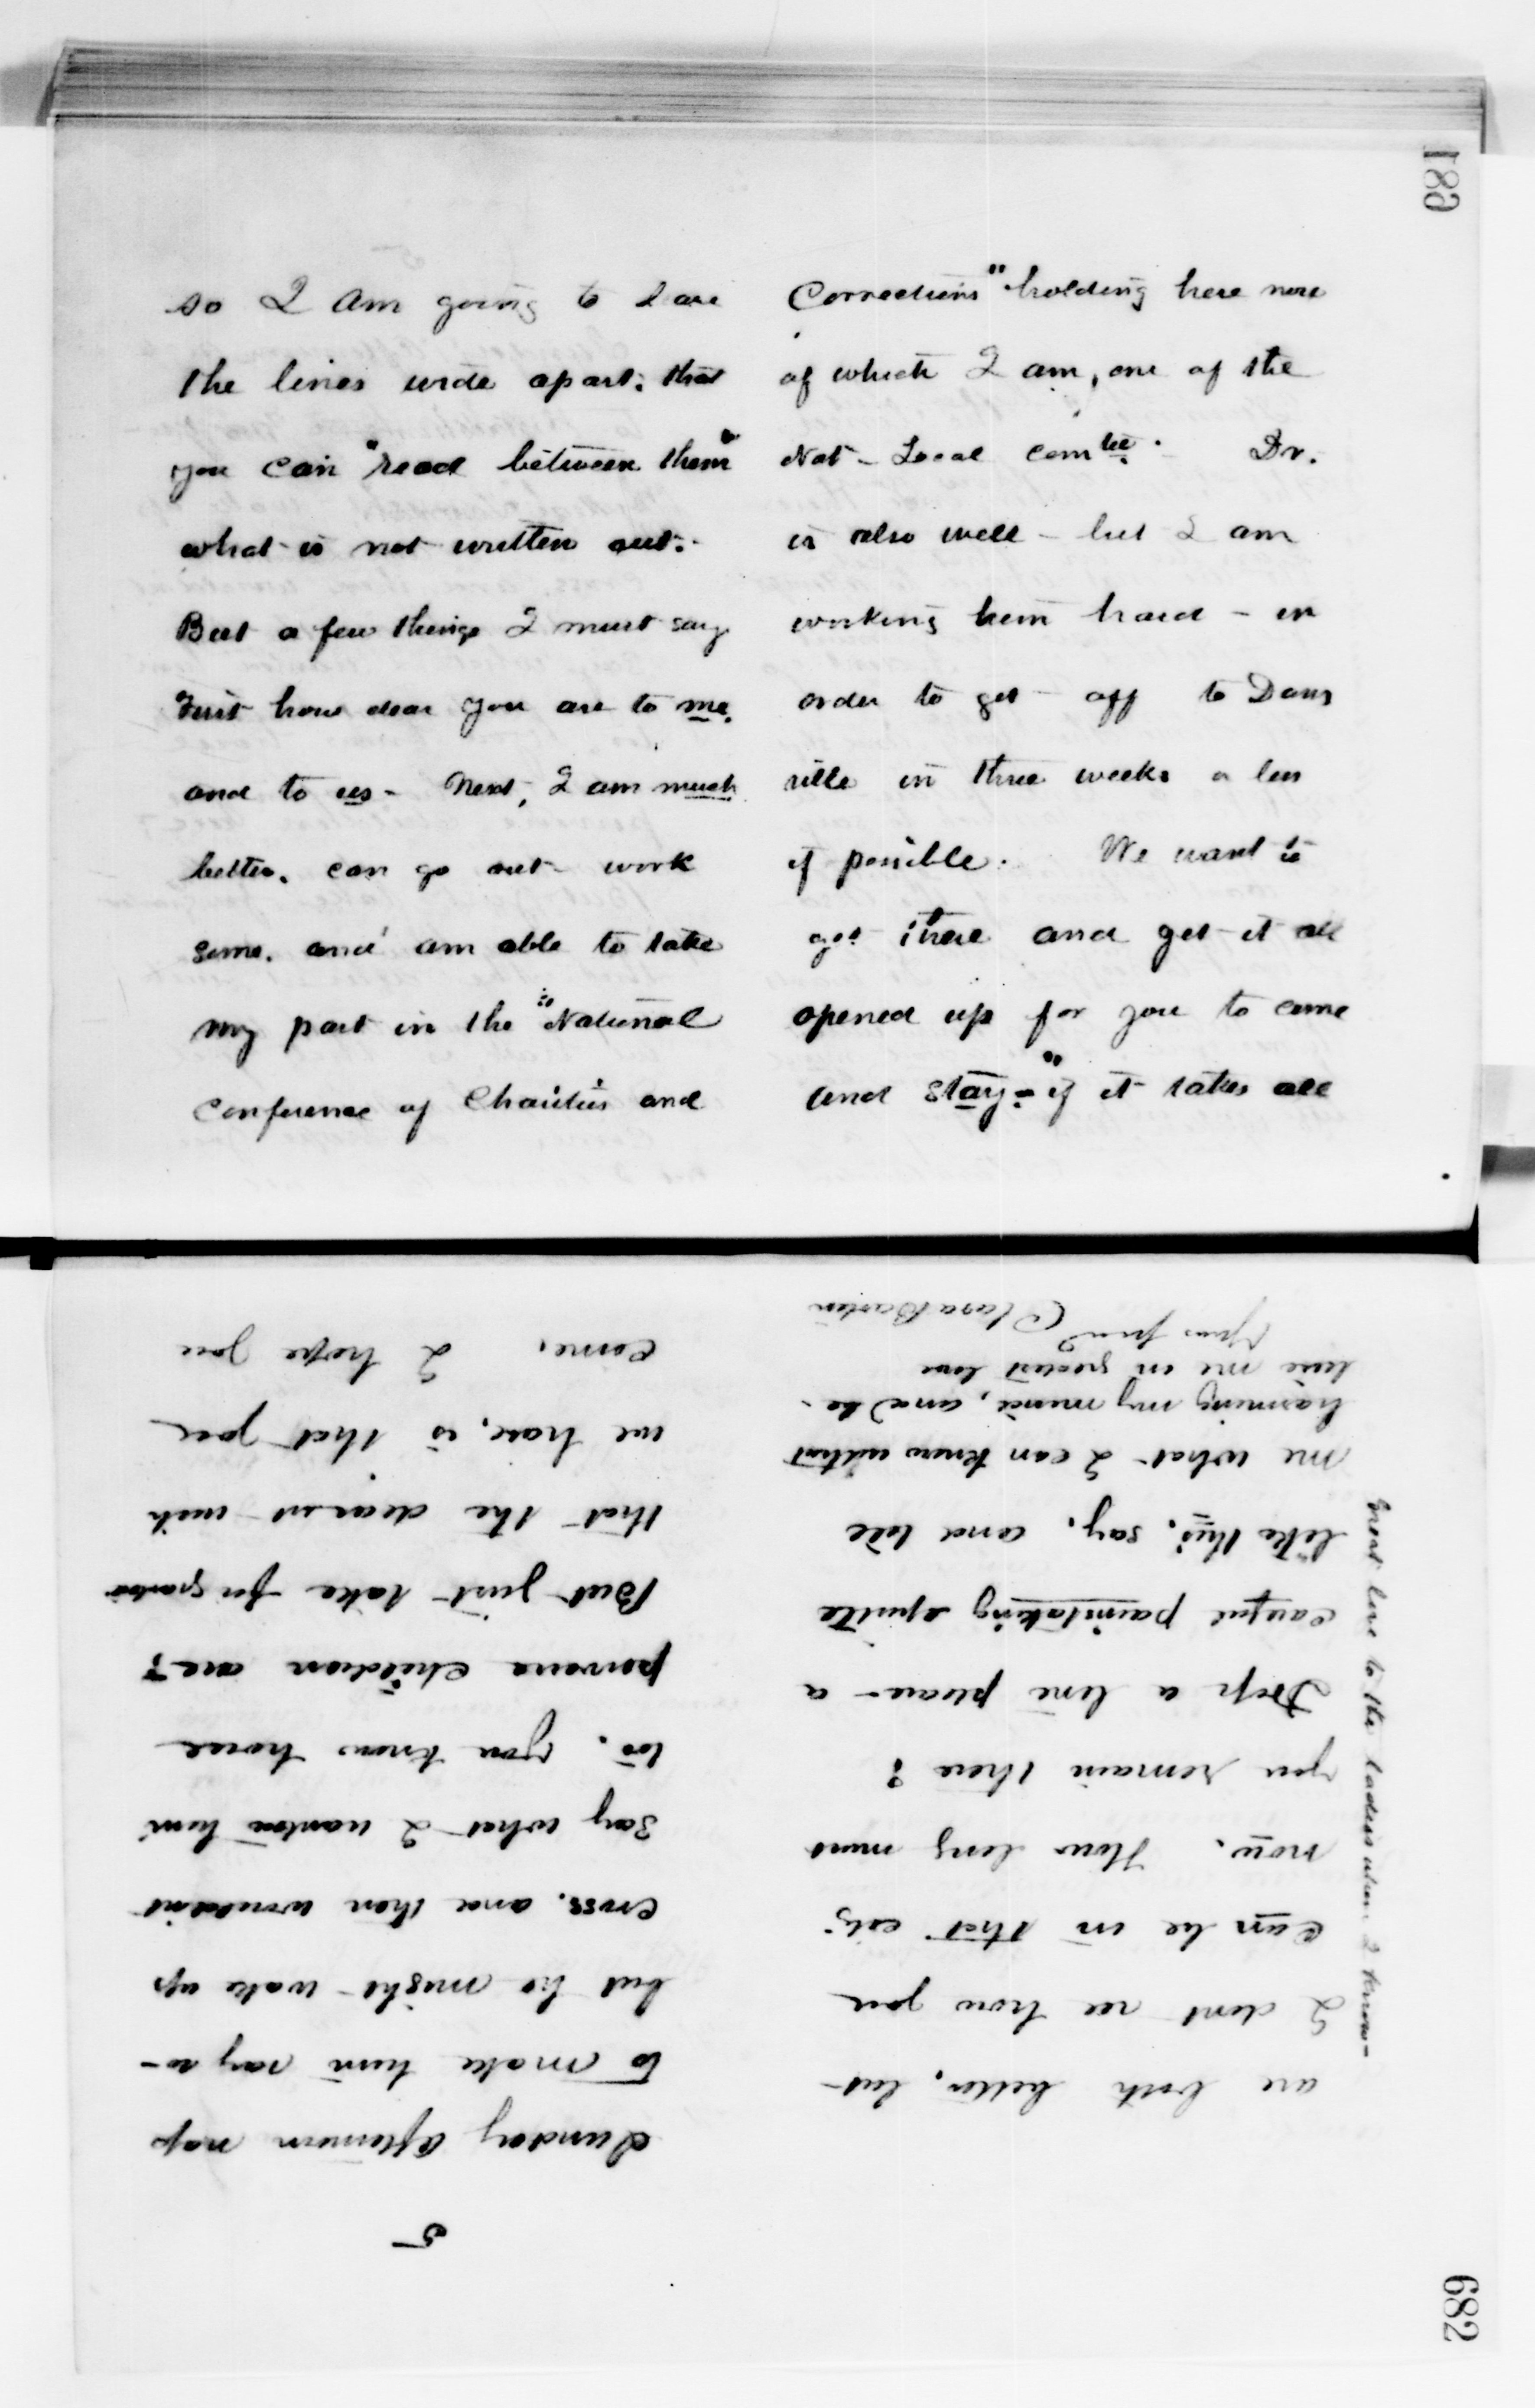 189
so I am going to dare
the lines wide apart: that
you can "read between them"
what is not written out.
But a few things I must say
First how dear you are to me.
and to us - Next, I am much
better. can go out - work
some. and am able to take
my part in the "National
Conference of Charities and
Corrections" holding here now
of which I am, one of the
Nat - Local comtee. Dr.
is also well - but I am
working him hard - in
order to get - off to Dans
ville in three weeks or less
if possible. We want to
get there and get it all
opened up for you to come
and stay - "if it takes all
5
Sunday afternoon nap
to make him say so -
but he might wake up
cross. and then wouldn't
say what I wanted him
too. You know how
perverse children are?
But just take for granted
that the dearest wish
we have, is that you
come. I hope you
are both better, but -
I dont see how you
can be in that city
now. How long must
you remain there?
Drop a line please - a
careful painstaking epistle
like this. say. and tell
me what I can know without
harming my mind, and be-
lieve me in greatest love
Yours fond
Clara Barton
Great love to the ladies whom I know -
682